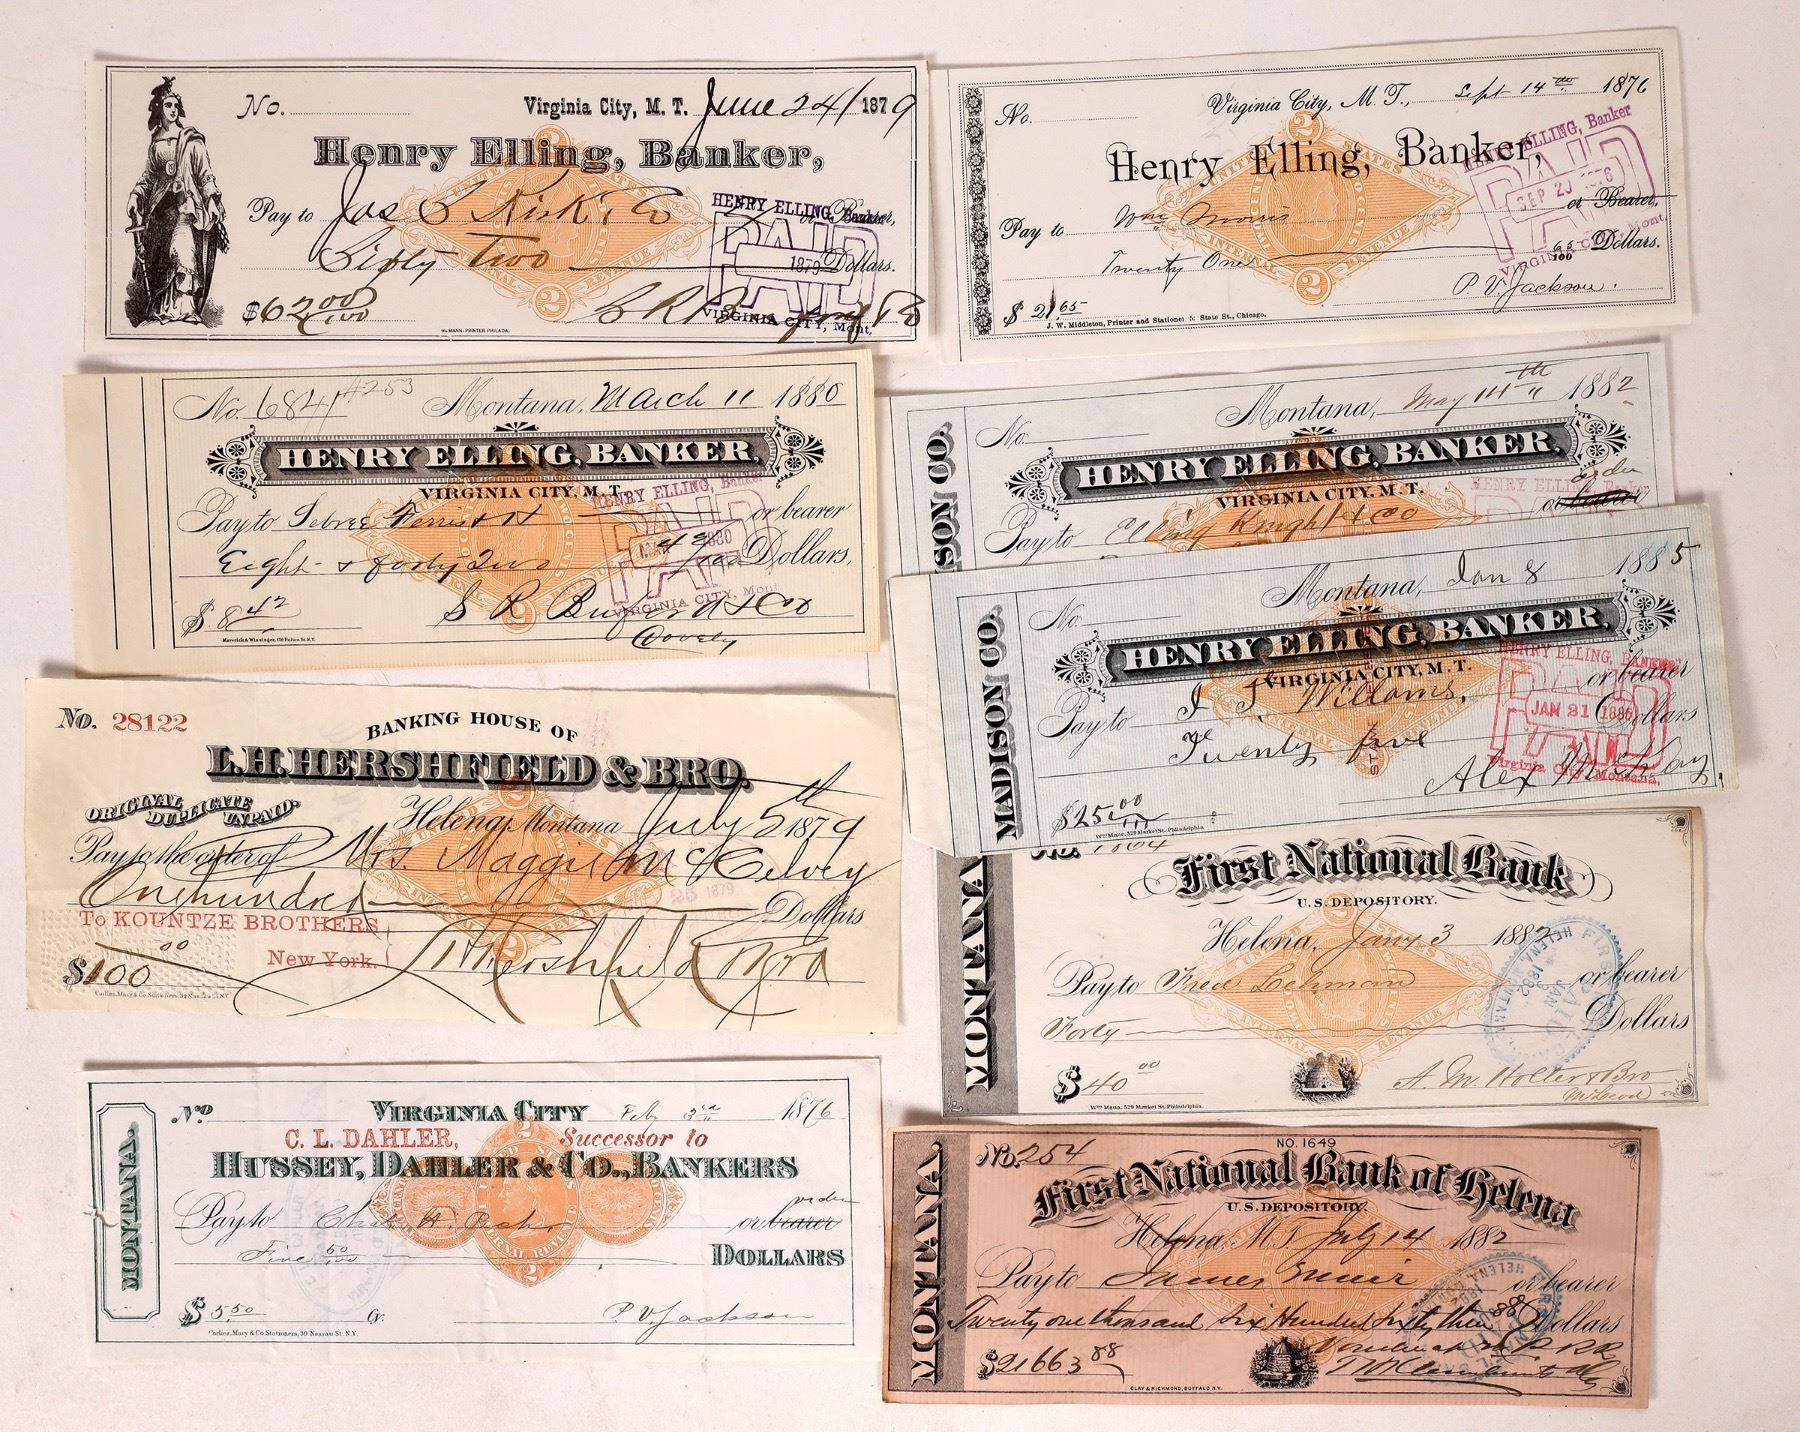 No.
Virginia City, M. T. June 24 1879
Henry Elling, Banker,
Pay to Jas
or Bearer,
Two
Dollars.
$62 00/100
McMANN. PRINTER PHILADA.
HENRY ELLING, Banker
PAID
1879
VIRGINIA CITY, Mont.
No.
Virginia City, M. T., Sept 14th 1876
Henry Elling, Banker,
Pay to Wm Morris or Bearer,
Twenty One 65/100 Dollars.
P. V. Jackson.
$ 21.65
J. W. Middleton, Printer and Stationer State St., Chicago.
HENRY ELLING, Banker
PAID
SEP 20 1876
VIRGINIA CITY, Mont.
No. 6841 #253
Montana, March 11 1880
HENRY ELLING, BANKER,
VIRGINIA CITY, M. T.
Pay to Sebree Ferris & or bearer
Eight & forty Two 42/100 Dollars,
$ 8 42
S R Buford & Co
Maverick & Wissinger, 176 Fulton St. N.Y.
HENRY ELLING, Banker
PAID
1880
VIRGINIA CITY, Mon
SON CO.
No.
Montana, May 14th 1882
HENRY ELLING, BANKER,
VIRGINIA CITY, M. T.
order
Pay to Elling Knight & Co or bearer
HENRY ELLING, Banker
MADISON CO.
No.
Montana, Jan 8 1885
HENRY ELLING, BANKER,
VIRGINIA CITY, M. T.
Pay to or bearer
Twenty five Dollars
Alex
$25 00/100
Wm Mann, 529 Market St. Philadelphia
HENRY ELLING, BANKER
PAID
JAN 21 1885
Virginia City, Montana.
No. 28122
BANKING HOUSE OF
L.H. HERSHFIELD & BRO.
ORIGINAL
DUPLICATE
UNPAID.
Helena, Montana July 5th 1879
Pay to the order of Mrs. Maggie McKelvey
One hundred Dollars
To KOUNTZE BROTHERS
New York.
$100 00
L H Hershfield & Bro
Corlies, Macy & Co. Stationers, 39 Nassau St. N.Y.
MONTANA
No. 1664
First National Bank
U.S. DEPOSITORY.
Helena, Jany 3 1882
Pay to Fred Lehman or bearer
Forty Dollars
$ 40 00
A. M. Holter & Bro
Wm Mann, 529 Market St. Philadelphia.
MONTANA.
No
VIRGINIA CITY Feby 1876
C. L. DAHLER, Successor to
HUSSEY, DAHLER & CO., BANKERS
order
Pay to Chas. H. or bearer
Five 50/100 DOLLARS
$ 5.50 Cy.
P. V. Jackson
Corlies, Macy & Co. Stationers, 39 Nassau St. N.Y.
MONTANA
No. 254
NO. 1649
First National Bank of Helena
U.S. DEPOSITORY.
Helena, M.T. July 14 1882
Pay to James Muir or bearer
Twenty one thousand six Hundred sixty three 88 Dollars
$21663 88
CLAY & RICHMOND, BUFFALO, N.Y.